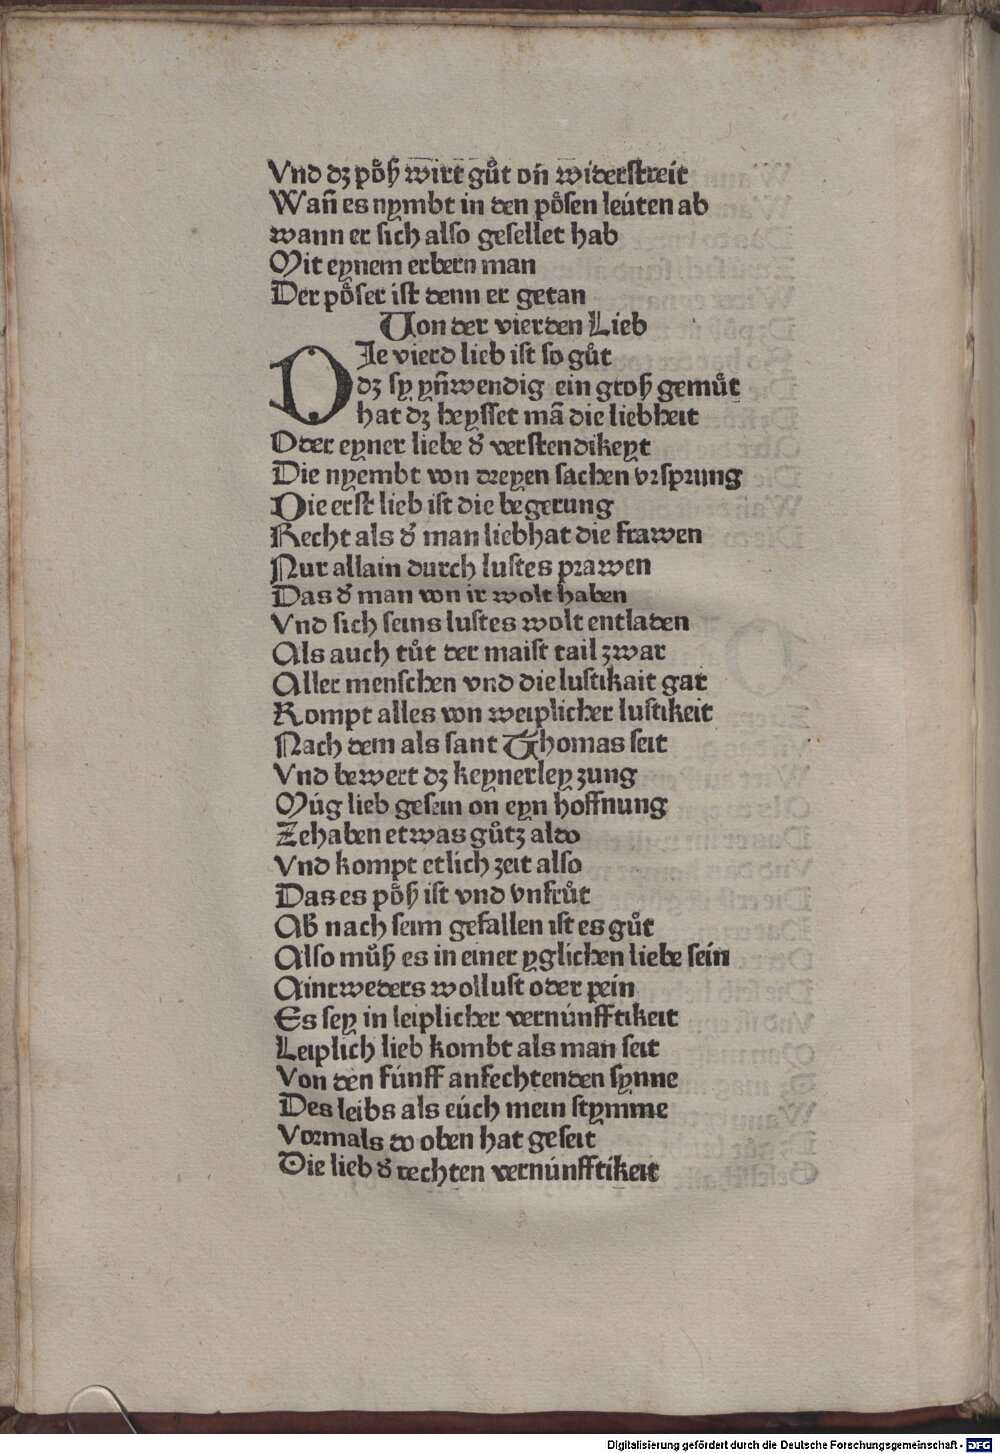 Vnd dz pöß wirt gůt on̄ widerstreit
Wan̄ es nymbt in den pösen leúten ab
wann er sich also gesellet hab
Mit eynem erbern man
Der pöser ist denn er getan
Von der vierden Lieb
DIe vierd lieb ist so gůt
dz sy yn̄wendig ein groß gemůt
hat dz heysset mā die liebheit
Oder eyner liebe d̕ verstendikeyt
Die nyembt von dreyen sachen vrsprung
Die erst lieb ist die begerung
Recht als d̕ man liebhat die frawen
Nur allain durch lustes prawen
Das d̕ man von ir wolt haben
Vnd sich seins lustes wolt entladen
Als auch tůt der maist tail zwar
Aller menschen vnd die lustikait gar
Kompt alles von weiplicher lustikeit
Nach dem als sant Thomas seit
Vnd bewert dz keynerley zung
Múg lieb gesein on eyn hoffnung
Zehaben etwas gůtz aldo
Vnd kompt etlich zeit also
Das es pöß ist vnd vnfrůt
Ab nach seim gefallen ist es gůt
Also můß es in einer yglichen liebe sein
Aintweders wollust oder pein
Es sey in leiplicher vernúnfftikeit
Leiplich lieb kombt als man seit
Von den fúnff anfechtenden synne
Des leibs als eúch mein stymme
Vormals do oben hat geseit
Die lieb d̕ rechten vernúnfftikeit
Digitalisierung gefördert durch die Deutsche Forschungsgemeinschaft - DFG